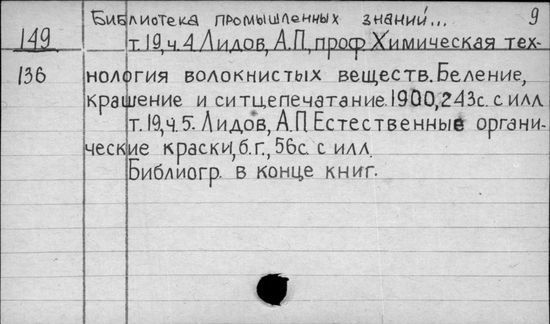 Библиотека промышленных знаний... 9
149 т.19, ч.4 Лидов, А.П., проф Химическая тех-
136 нология волокнистых веществ. Беление,
крашение и ситцепечатание. 1900, 243с. с илл
т.19, ч.5. Лидов, А.П Естественные органи-
ческие краски, б.г., 56с. с илл.
Библиогр. в конце книг.